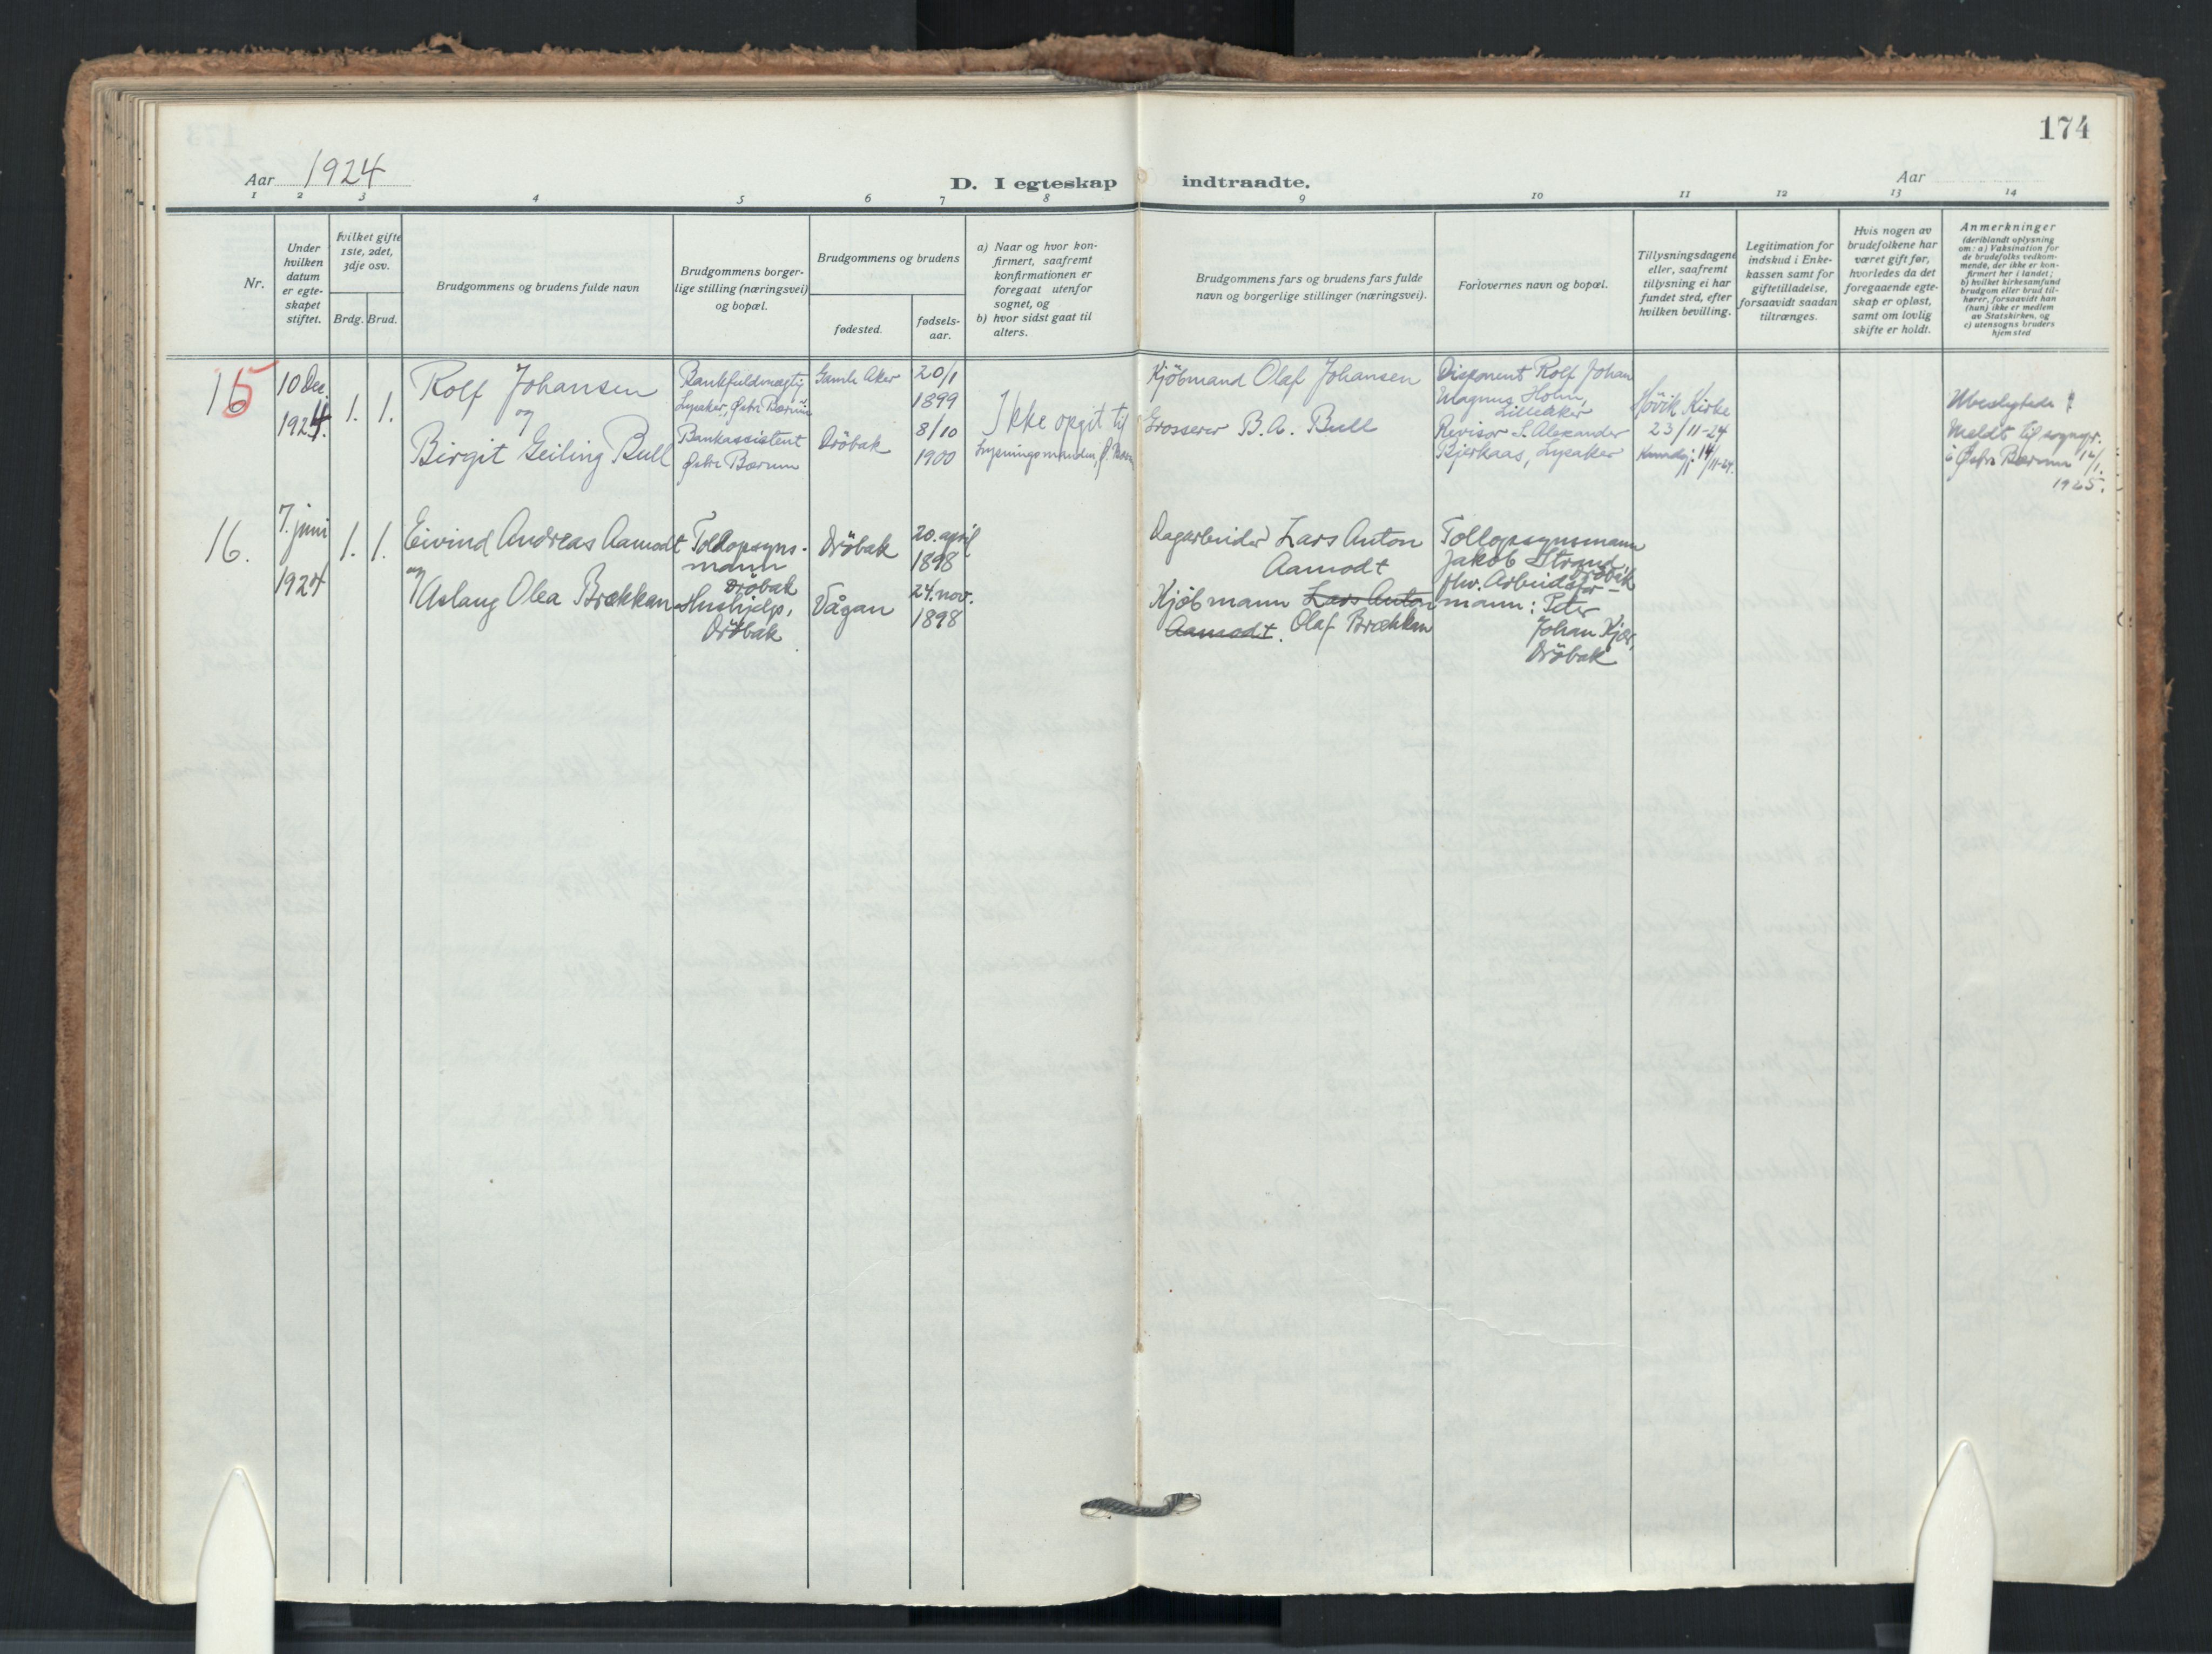 174
Aar 1924
D. I egteskap indtraadte.
Aar
1 2 3 4 5 6 7 8 9 10 11 12 13 14
Nr.
Under
hvilken
datum
er egte-
skapet
stiftet.
Hvilket gifte
1ste, 2det,
3dje osv.
Brdg. Brud.
Brudgommens og brudens fulde navn
Brudgommens borger-
lige stilling (næringsvei)
og bopæl.
Brudgommens og brudens
fødested.
fødsels-
aar.
a) Naar og hvor kon-
firmert, saafremt
konfirmationen er
foregaat utenfor
sognet, og
b) hvor sidst gaat til
alters.
Brudgommens fars og brudens fars fulde
navn og borgerlige stillinger (næringsvei).
Forlovernes navn og bopæl.
Tillysningsdagene
eller, saafremt
tillysning ei har
fundet sted, efter
hvilken bevilling.
Legitimation for
indskud i Enke-
kassen samt for
giftetilladelse,
forsaavidt saadan
tiltrænges.
Hvis nogen av
brudefolkene har
været gift før,
hvorledes da det
foregaaende egte-
skap er opløst,
samt om lovlig
skifte er holdt.
Anmerkninger
(deriblandt oplysning
om: a) Vaksination for
de brudefolks vedkom-
mende, der ikke er kon-
firmert her i landet;
b) hvilket kirkesamfund
brudgom eller brud til-
hører, forsaavidt han
(hun) ikke er medlem
av Statskirken, og
c) utensogns bruders
hjemsted
15
10 Dec.
1924.
1. 1.
Rolf Johansen
og
Birgit Geiling Bull
Bankfuldmægtig
Lysaker, Østre Bærum
Bankassistent
Østre Bærum
Gamle Aker
Dröbak
20/1
1899
8/10
1900
Ikke opgit til
Lysningsmanden, Ø. Bærum
Kjöbmand Olaf Johansen
Grosserer B. A. Bull
Disponent Rolf Johan
Magnus Holm,
Lilleaker
Revisor S. Alexander
Bjerkaas, Lysaker
Hövik Kirke
23/11-24
Kundgj: 14/11-24.
Ubeslegtede
Meldt til sognepr.
i Østre Bærum 12/1.
1925.
16.
7. juni
1924
1. 1.
Eivind Andreas Aamodt
og
Aslaug Olea Brækkan
Tollopsyns-
mann
Dröbak
Hushjelp,
Dröbak
Dröbak
Vågan
20. april
1898
24. nov.
1898
Dagarbeider Lars Anton
Aamodt
Kjöbmann Lars Anton
Aamodt. Olaf Brækkan
Tollopsynsmann
Jakob Strand,
Dröbak
fhv. Arbeidsfor-
mann: Peter
Johan Kjær,
Dröbak